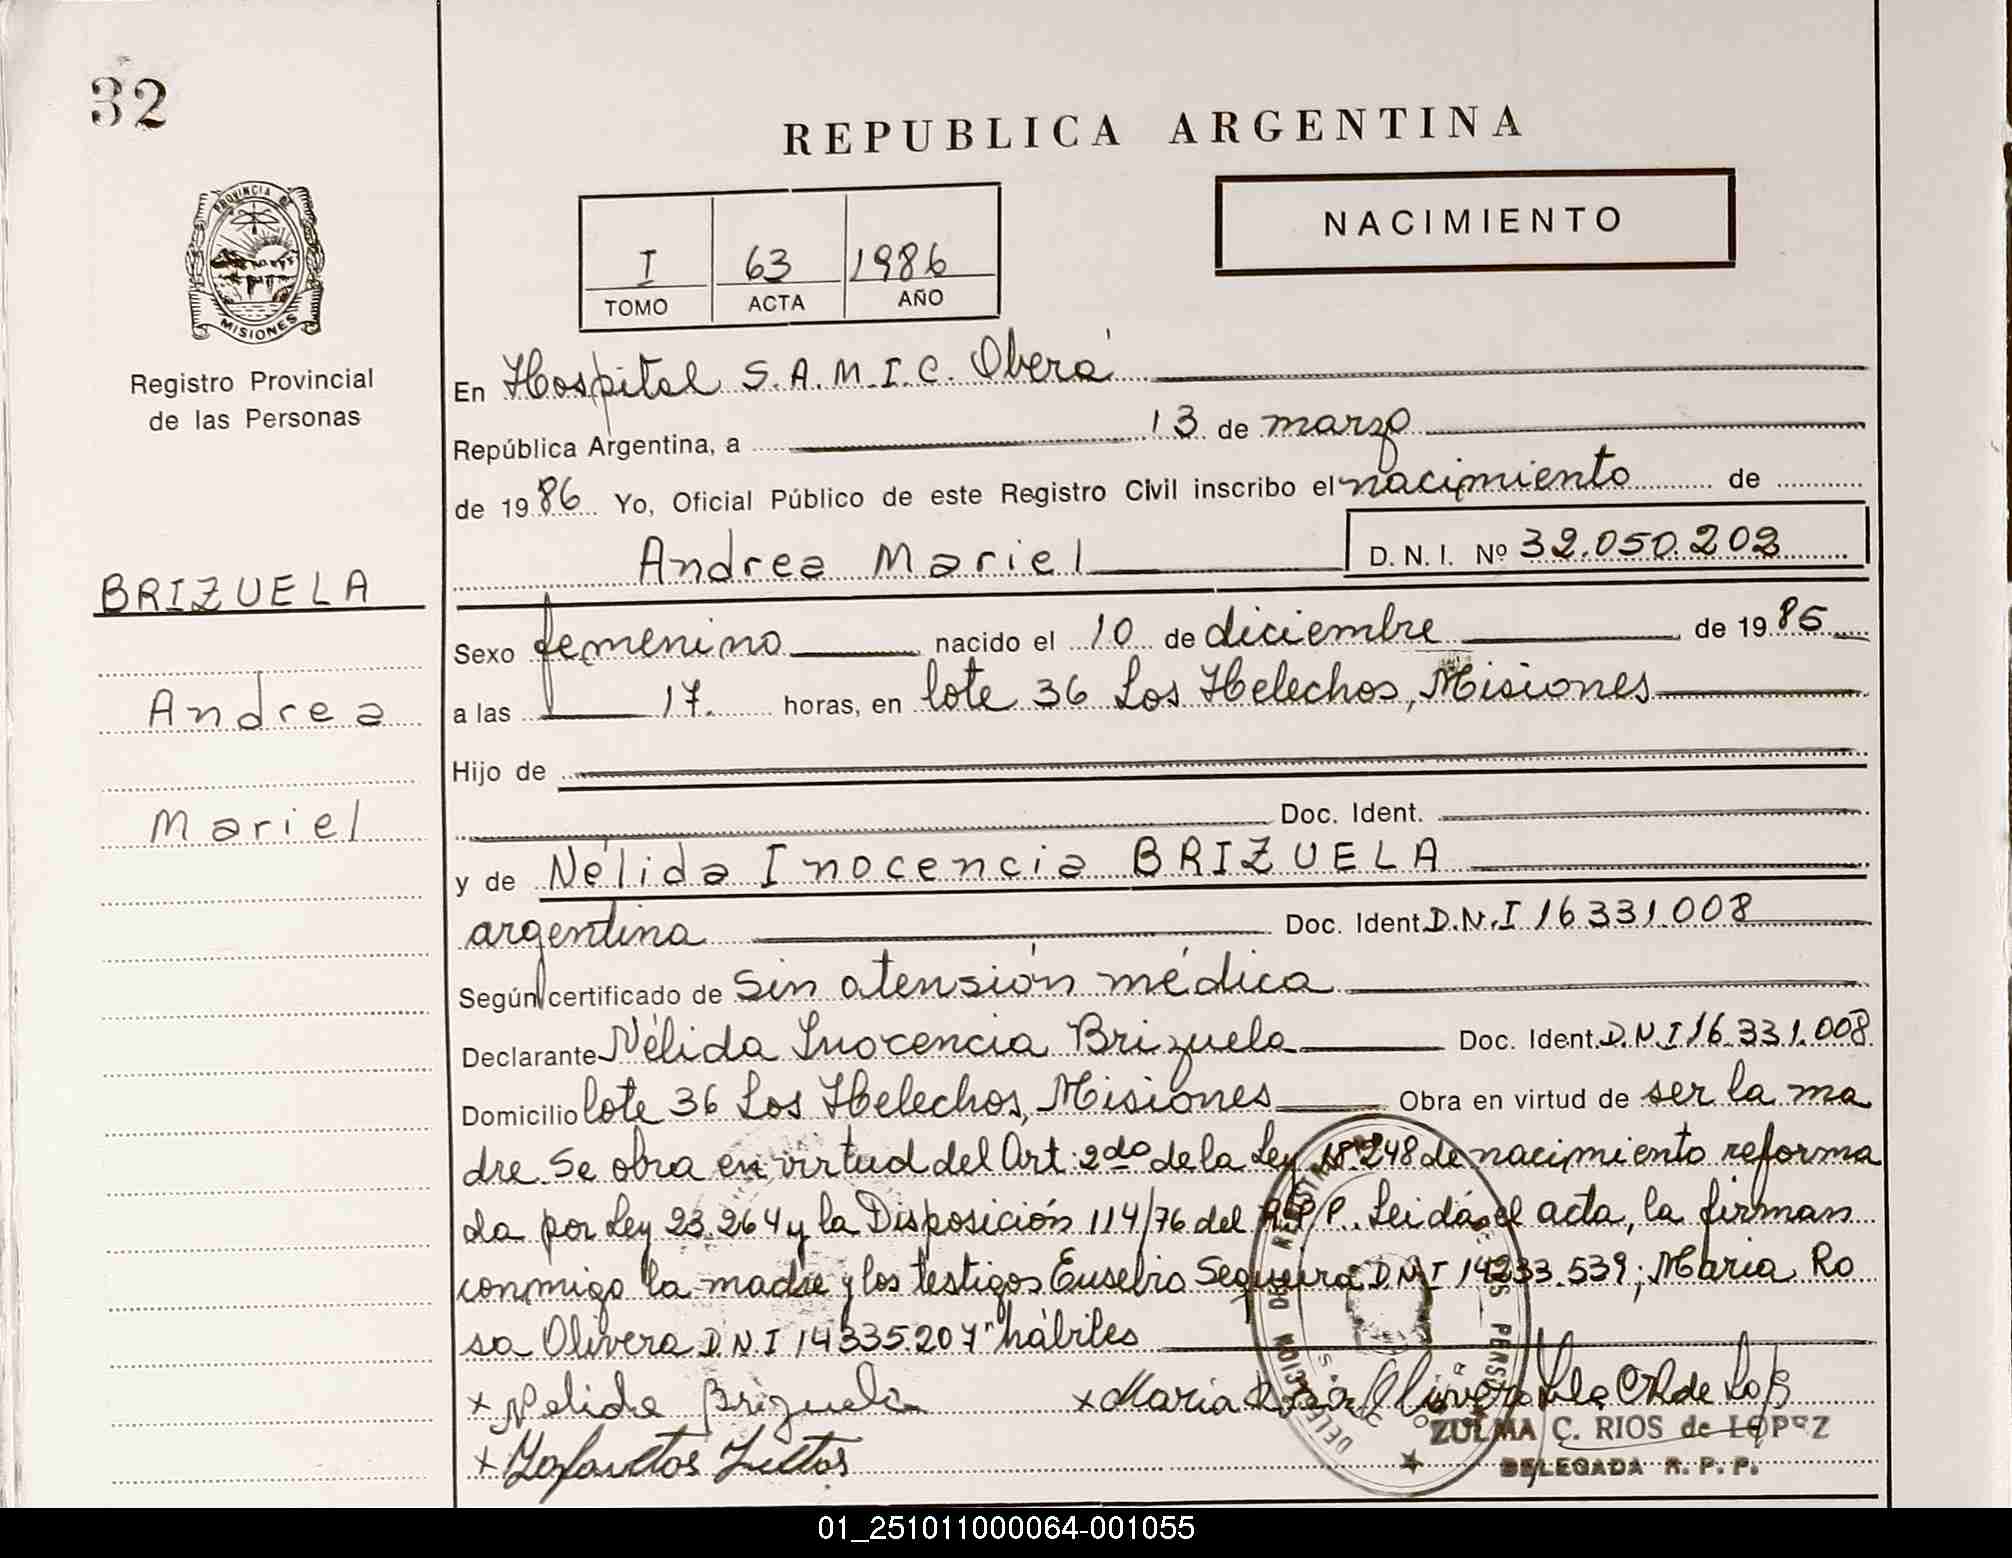 32
REPUBLICA ARGENTINA
NACIMIENTO
I 63 1986
TOMO ACTA AÑO
PROVINCIA DE
MISIONES
Registro Provincial
de las Personas
En Hospital S.A.M.I.C. Oberá
República Argentina, a 13 de marzo
de 1986 Yo, Oficial Público de este Registro Civil inscribo el nacimiento de
Andrea Mariel D. N. I. Nº 32.050.202
BRIZUELA
Andrea
Mariel
Sexo femenino nacido el 10 de diciembre de 1985
a las 17. horas, en lote 36 Los Helechos, Misiones
Hijo de
Doc. Ident.
y de Nélida Inocencia BRIZUELA
argentina Doc. Ident. D.N.I 16.331.008
Según certificado de Sin atensión médica
Declarante Nélida Inocencia Brizuela Doc. Ident. D.N.I 16.331.008
Domicilio lote 36 Los Helechos, Misiones Obra en virtud de ser la ma
dre. Se obra en virtud del Art. 2do de la Ley 18.248 de nacimiento reforma
da por Ley 23.264 y la Disposición 114/76 del R.P.P. Leida el acta, la firman
conmigo la madre y los testigos Eusebio Sequeira D.N.I 14233.539; Maria Ro
sa Olivera D.N.I 14335.207 hábiles
x Nelida Brizuela x Maria Rosa Olivera
x
ZULMA C. RIOS de LOPEZ
DELEGADA R. P. P.
01_251011000064-001055